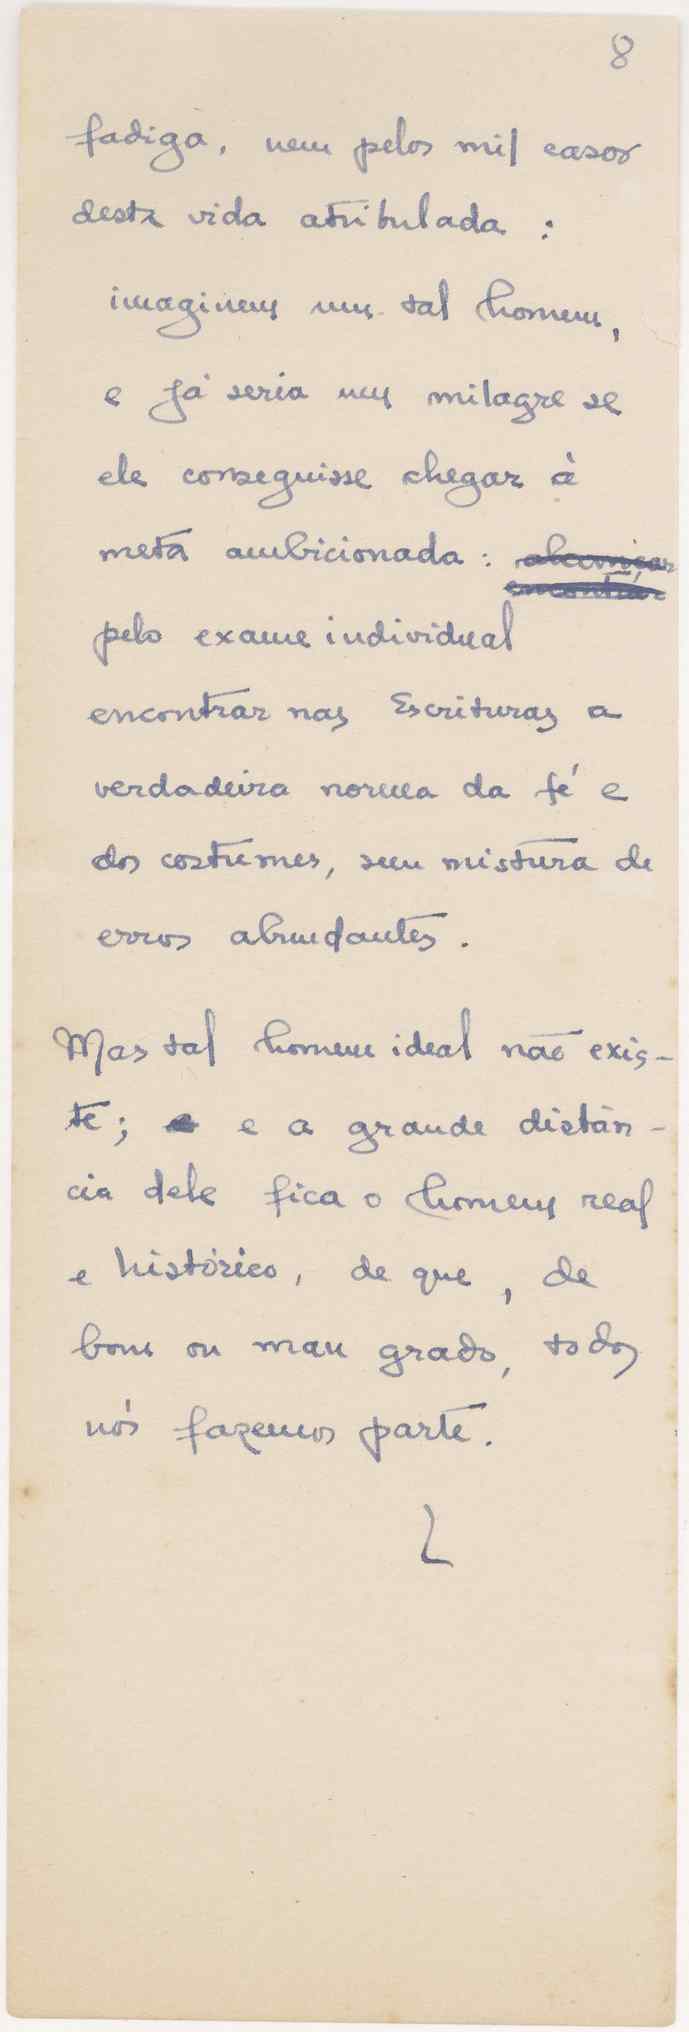 8
fadiga, nem pelos mil casos
desta vida atribulada :
imaginem um tal homem,
e já seria um milagre se
ele conseguisse chegar à
meta ambicionada : alcançar
encontrar
pelo exame individual
encontrar nas Escrituras a
verdadeira norma da fé e
dos costumes, sem mistura de
erros abundantes.
Mas tal homem ideal não exis-
te; e e a grande distân-
cia dele fica o homem real
e histórico, de que, de
bom ou mau grado, todos
nós fazemos parte.